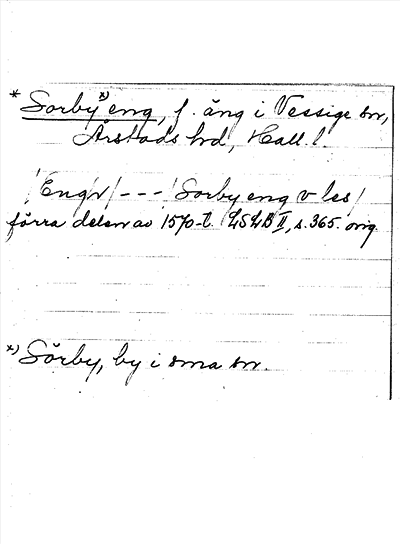 * Sorby x) eng, f. äng i Vessige sn,
Årstads hd, Hall. l.
/Engn/ --- /Sorby eng v les/
förra delen av 1570-t. LSLB II, s. 365. orig.
x) Sörby, by i sma sn.